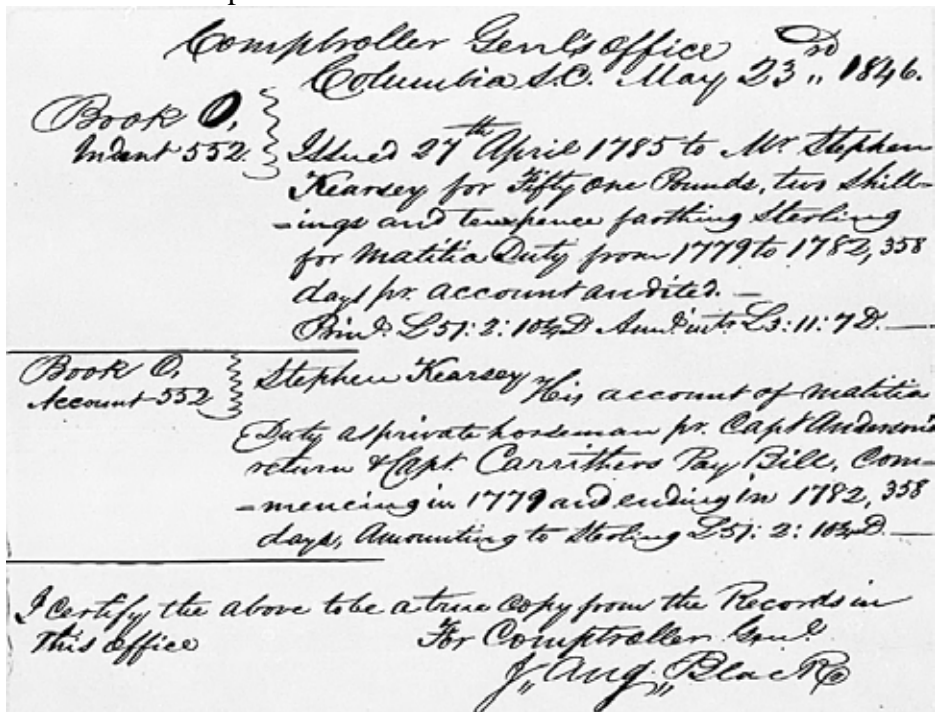 Comptroller Genl's Office
Columbia S.C. May 23rd 1846.
Book O,
Indent 552.
Issued 27th April 1785 to Mr Stephen
Kearsey for Fifty One Pounds, two Shill-
-ings and tenpence farthing Sterling
for Malitia Duty from 1779 to 1782, 358
days pr. account audited. —
Prinl. £51: 2: 10¼D Annl intt £3: 11: 7D. —
Book O.
Account 552
Stephen Kearsey His account of Malitia
Duty as private horseman pr. Capt Anderson's
return & Capt. Carrithers Pay Bill, Com-
-mencing in 1779 and ending in 1782, 358
days, Amounting to Sterling £51: 2: 10¼D. —
I certify the above to be a true Copy from the Records in
This office
For Comptroller Genl.
J,, Aug,, Black